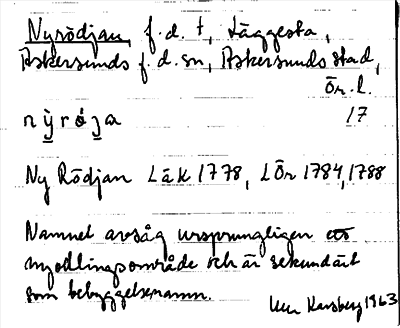 Nyrödjan, f.d. t, Läggesta,
Askersunds f.d. sn, Askersunds stad,
Ör. l.
17
Ny Rödjan LäK 1778, LÖr 1784, 1788
Namnet avsåg ursprungligen ett
nyodlingsområde och är sekundärt
som bebyggelsenamn.
Karsberg 1963